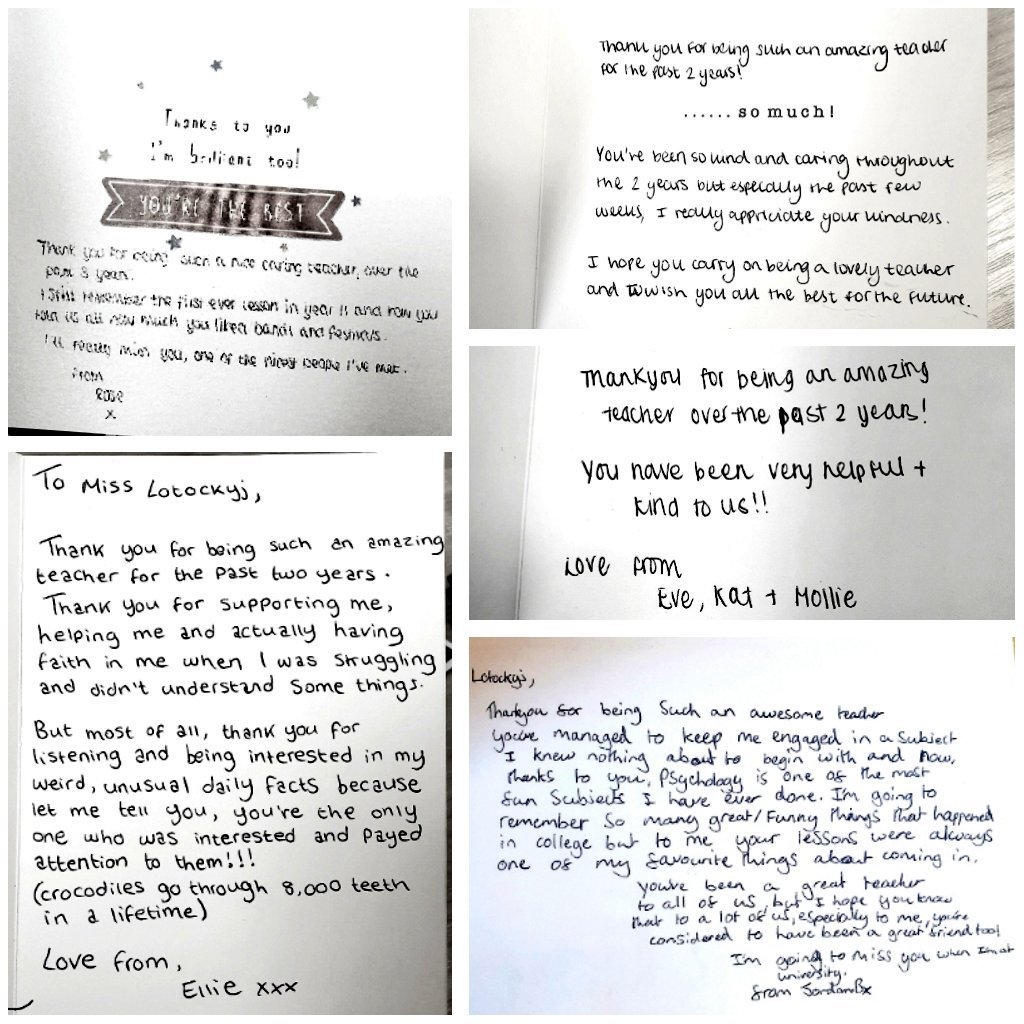 Thanks to you
I'm brilliant too!
YOU'RE THE BEST
Thank you for being such a nice caring teacher, over the
past 3 years.
I still remember the first ever lesson in year 11 and how you
told us all how much you liked bands and festivals.
I'll really miss you, one of the nicest people I've met.
From
Rose
x
Thank you for being such an amazing teacher
for the past 2 years!
...... so much!
You're been so kind and caring throughout
the 2 years but especially the past few
weeks, I really appriciate your kindness.
I hope you carry on being a lovely teacher
and wish you all the best for the future.
Thankyou for being an amazing
teacher over the past 2 years!
You have been very helpful +
kind to us!!
Love from
Eve, Kat + Mollie
To Miss Lotockyj,
Thank you for being such an amazing
teacher for the past two years.
Thank you for supporting me,
helping me and actually having
faith in me when I was struggling
and didn't understand some things.
But most of all, thank you for
listening and being interested in my
weird, unusual daily facts because
let me tell you, you're the only
one who was interested and payed
attention to them!!!
(crocodiles go through 8,000 teeth
in a lifetime)
Love from,
Ellie xxx
Lotockyj,
Thankyou for being such an awesome teacher
you've managed to keep me engaged in a subject
I knew nothing about to begin with and now,
thanks to you, Psychology is one of the most
fun subjects I have ever done. I'm going to
remember so many great/funny things that happened
in college but to me your lessons were always
one of my favourite things about coming in.
you've been a great teacher
to all of us, but I hope you know
that to a lot of us, especially to me, you're
considered to have been a great friend too!
I'm going to miss you when I'm at
university.
from Jordan B x